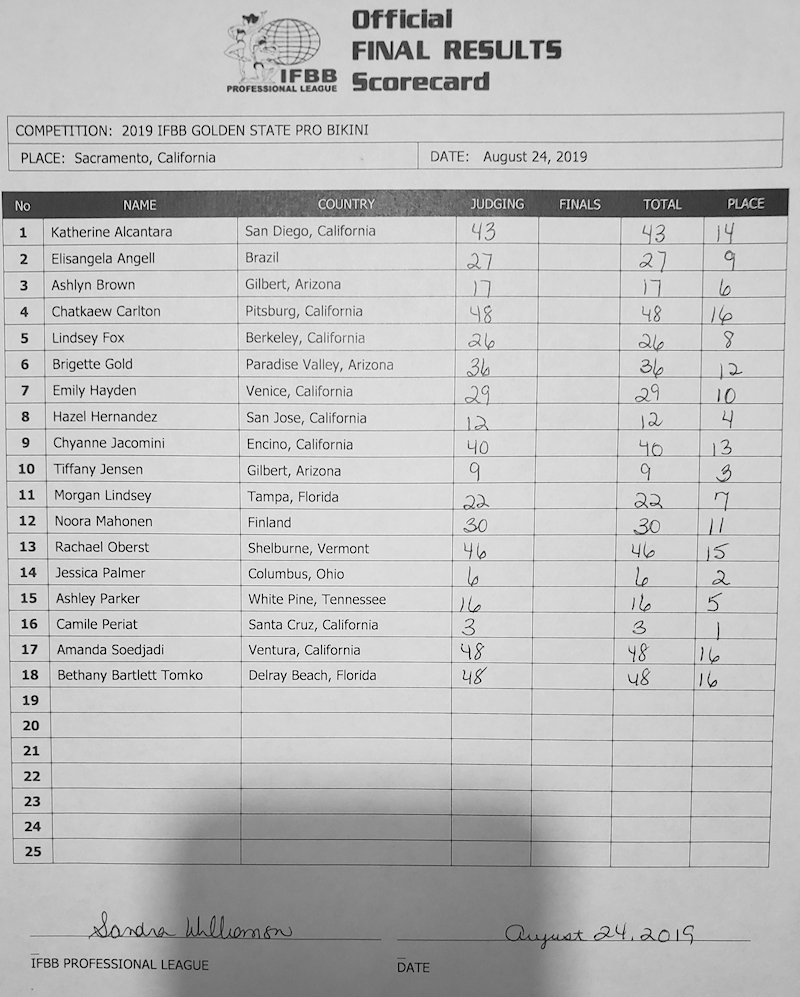 Official
FINAL RESULTS
Scorecard
IFBB
PROFESSIONAL LEAGUE
COMPETITION: 2019 IFBB GOLDEN STATE PRO BIKINI
PLACE: Sacramento, California DATE: August 24, 2019
No NAME COUNTRY JUDGING FINALS TOTAL PLACE
1 Katherine Alcantara San Diego, California 43 43 14
2 Elisangela Angell Brazil 27 27 9
3 Ashlyn Brown Gilbert, Arizona 17 17 6
4 Chatkaew Carlton Pitsburg, California 48 48 16
5 Lindsey Fox Berkeley, California 26 26 8
6 Brigette Gold Paradise Valley, Arizona 36 36 12
7 Emily Hayden Venice, California 29 29 10
8 Hazel Hernandez San Jose, California 12 12 4
9 Chyanne Jacomini Encino, California 40 40 13
10 Tiffany Jensen Gilbert, Arizona 9 9 3
11 Morgan Lindsey Tampa, Florida 22 22 7
12 Noora Mahonen Finland 30 30 11
13 Rachael Oberst Shelburne, Vermont 46 46 15
14 Jessica Palmer Columbus, Ohio 6 6 2
15 Ashley Parker White Pine, Tennessee 16 16 5
16 Camile Periat Santa Cruz, California 3 3 1
17 Amanda Soedjadi Ventura, California 48 48 16
18 Bethany Bartlett Tomko Delray Beach, Florida 48 48 16
19
20
21
22
23
24
25
Sandra Williamson August 24, 2019
IFBB PROFESSIONAL LEAGUE DATE